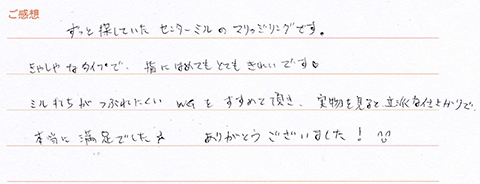 ご感想
ずっと探していたセンターミルのマリッジリングです。
きゃしゃなタイプで、指にはめてもとてもきれいです♡
ミル打ちがつぶれにくいWGをすすめて頂き、実物を見ると立派な仕上がりで、
本当に満足でした☆ ありがとうございました！